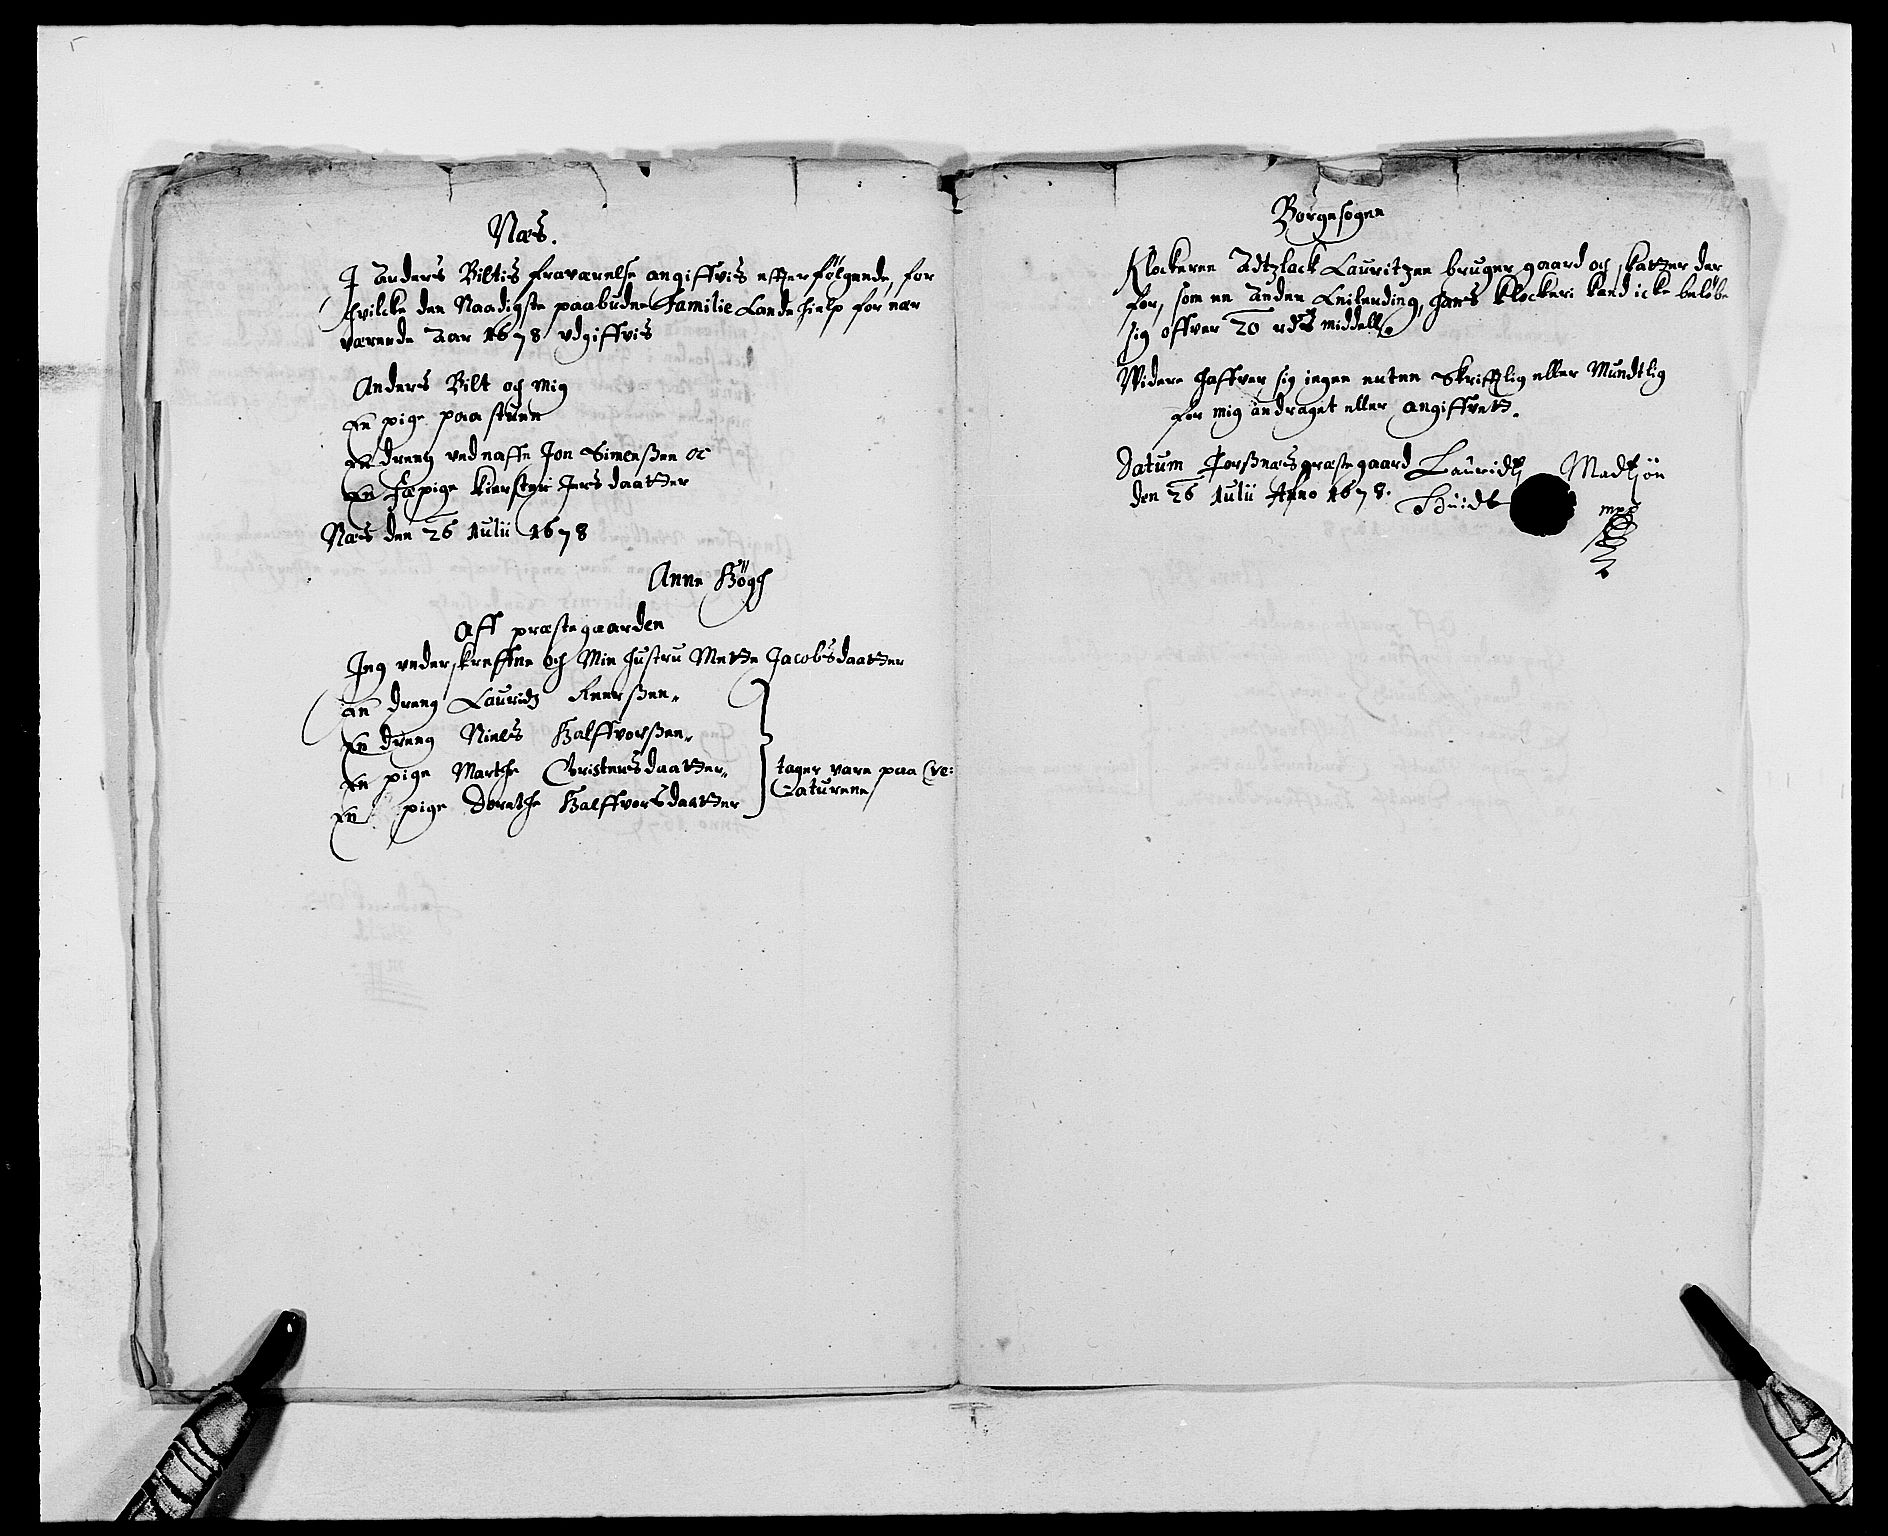 Næs.
J Anders Biltis fraværelse angiffvis effterfølgende, for
hvilcke den Naadigste paabudne Familie Landehielp for nær
værende Aar 1678 udgiffvis
Anders Bilt och mig
En pige paa stuen
En dreng ved naffn Jon Simenßen oc
En fæpige Kiersten Jersdaatter
Næs den 26 Julii 1678
Anne Høgh
Aff præstegaarden
Jeg underskreffne och Min hustru Mette Jacobsdaatter
an dreng Lauridz
En dreng Niels Halffvorßen
En pige Marthe Christensdaatter
En pige Dorethe Halffvorsdaatter
tager vare paa Cre:
aturene
Borgesogen
Klockeren Lauritzen bruger gaard och skatter der
for, som en Anden Leilending, hans Klockeri kand icke beløbe
sig offver 20 rds middell
Widere haffver sig ingen enten Skrifftlig eller Mundtlig
for mig andraget eller angiffvet.
Datum Torßnæs præstegaard
den 26 Julii Anno 1678.
Lauridtz Madtzøn
mpp